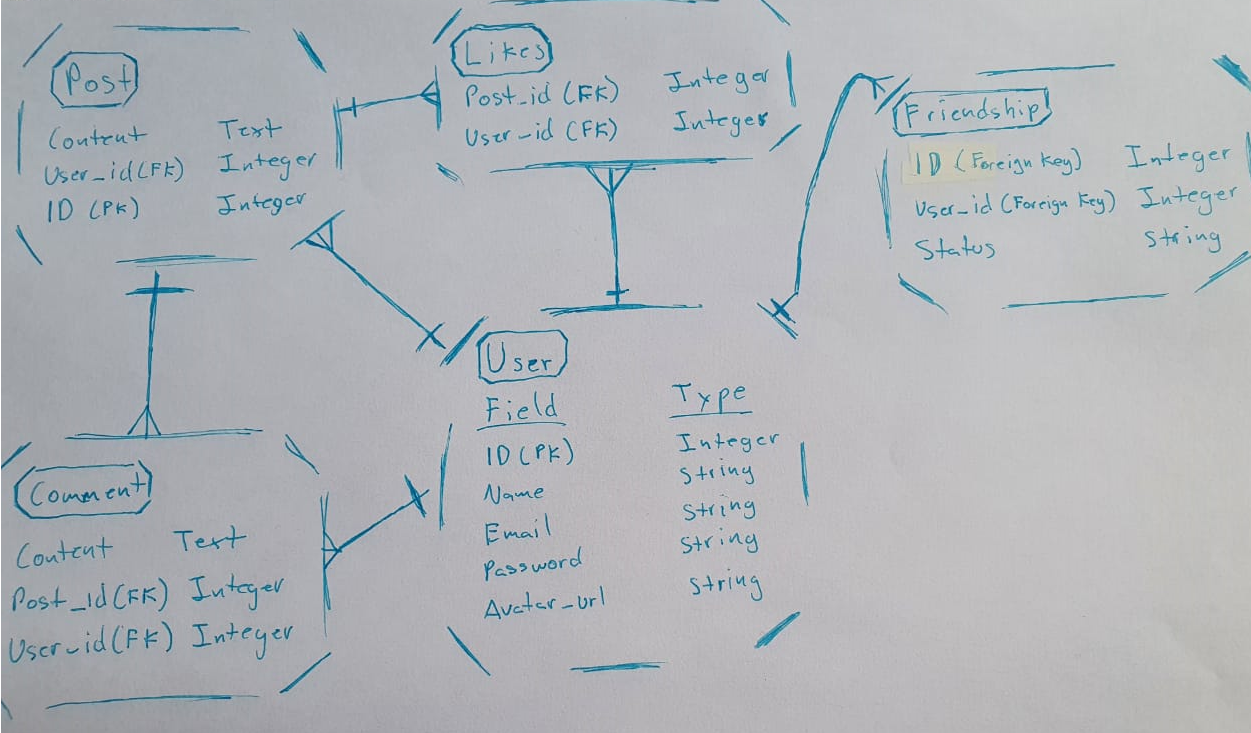 Post
Content Text
User_id(FK) Integer
ID (PK) Integer
Likes
Post_id (FK) Integer
User_id (FK) Integer
Friendship
ID (Foreign Key) Integer
User_id (Foreign Key) Integer
Status String
User
Field Type
ID (PK) Integer
Name String
Email String
Password String
Avatar_url String
Comment
Content Text
Post_id (FK) Integer
User_id (FK) Integer